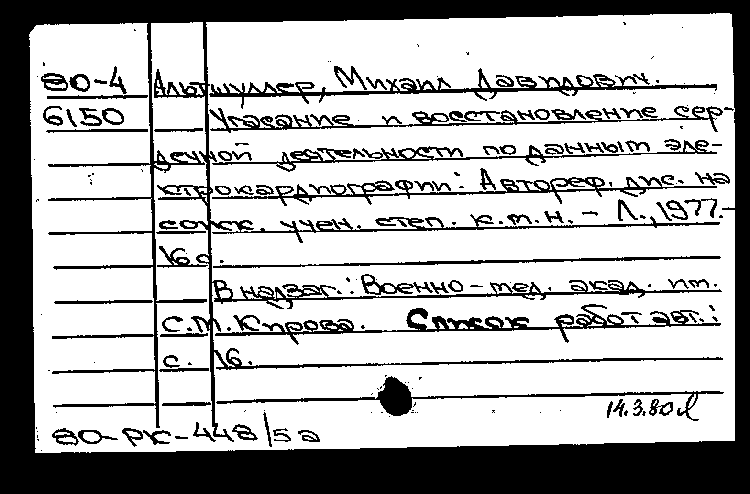 80-4 Альтшуллер, Михаил Давидович.
6150 Угасание и восстановление сер-
дечной деятельности по данным эле-
ктрокардиографии: Автореф. дис. на
соиск. учен. степ. к.м.н. - Л., 1977.-
16 с.
В надзаг.: Военно-мед. акад. им.
С.М. Кирова. Список работ авт.:
с. 16.
14.3.80
80-РК-448/5а